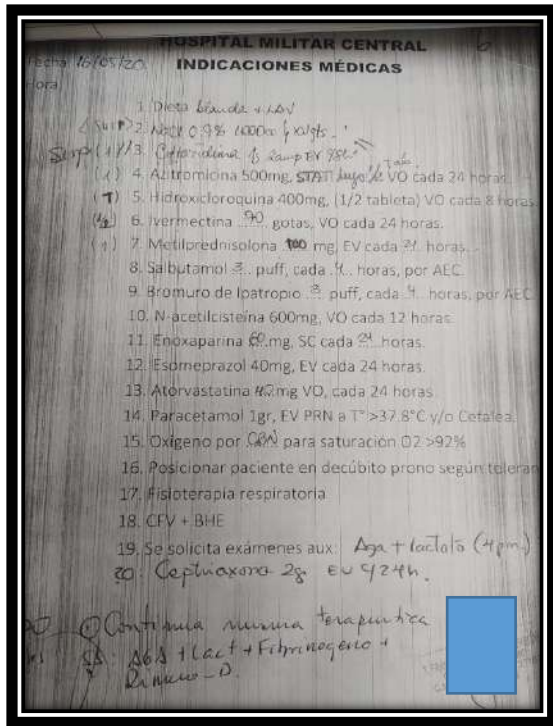 HOSPITAL MILITAR CENTRAL
Fecha 16/05/20 INDICACIONES MÉDICAS
Hora
1. Dieta blanda + LAV
2. NaCl 0.9% 1000cc
3. 1 amp EV
4. Azitromicina 500mg, STAT luego VO cada 24 horas.
(T) 5. Hidroxicloroquina 400mg, (1/2 tableta) VO cada 8 horas
6. Ivermectina 70 gotas, VO cada 24 horas.
(1) 7. Metilprednisolona 100 mg, EV cada 24 horas.
8. Salbutamol 3 puff, cada 4 horas, por AEC.
9. Bromuro de Ipatropio 3 puff, cada 4 horas, por AEC
10. N-acetilcisteína 600mg, VO cada 12 horas.
11. Enoxaparina 60 mg, SC cada 24 horas.
12. Esomeprazol 40mg, EV cada 24 horas.
13. Atorvastatina 40 mg VO, cada 24 horas.
14. Paracetamol 1gr, EV PRN a T° >37.8°C y/o Cefalea.
15. Oxigeno por CBN para saturación O2 >92%
16. Posicionar paciente en decúbito prono según toleran
17. Fisioterapia respiratoria
18. CFV + BHE
19. Se solicita exámenes aux: Aga + lactato (4pm)
20. Ceptriaxona 2g. EV c/24h.
Continua misma terapeutica
SS: AGA + Lact + Fibrinogeno +
Dimero-D.